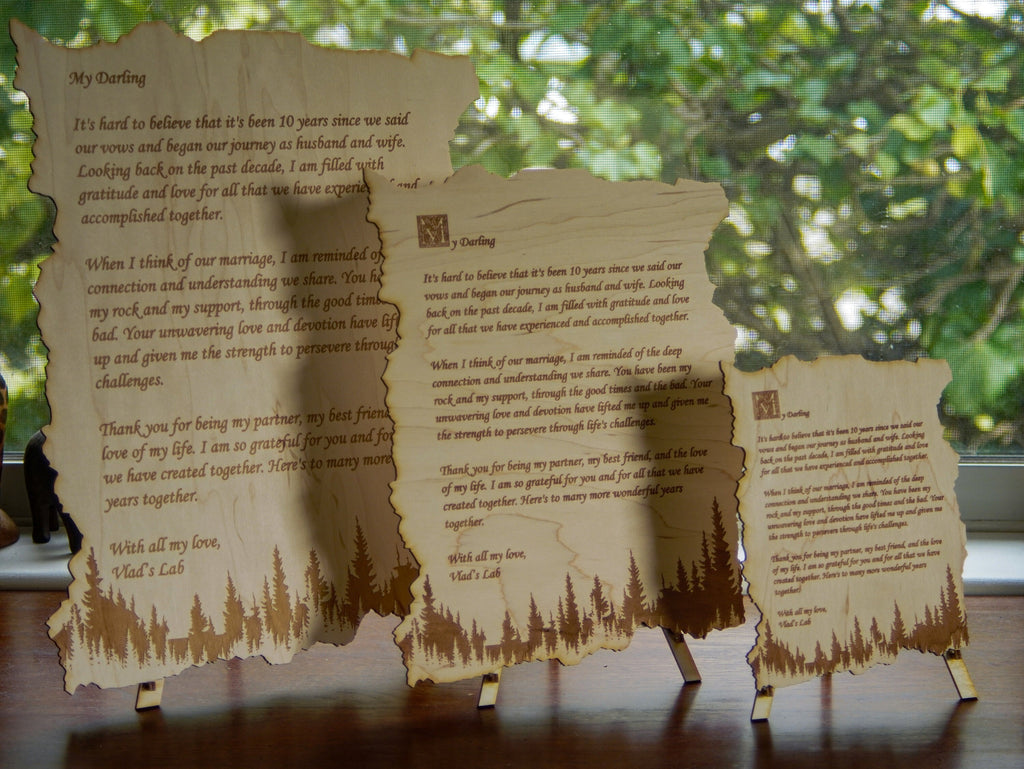 My Darling
It's hard to believe that it's been 10 years since we said
our vows and began our journey as husband and wife.
Looking back on the past decade, I am filled with
gratitude and love for all that we have experie and
accomplished together.
When I think of our marriage, I am reminded of
connection and understanding we share. You h
my rock and my support, through the good tim
bad. Your unwavering love and devotion have lif
up and given me the strength to persevere throug
challenges.
Thank you for being my partner, my best frien
love of my life. I am so grateful for you and fo
we have created together. Here's to many more
years together.
With all my love,
Vlad's Lab
My Darling
It's hard to believe that it's been 10 years since we said our
vows and began our journey as husband and wife. Looking
back on the past decade, I am filled with gratitude and love
for all that we have experienced and accomplished together.
When I think of our marriage, I am reminded of the deep
connection and understanding we share. You have been my
rock and my support, through the good times and the bad. Your
unwavering love and devotion have lifted me up and given me
the strength to persevere through life's challenges.
Thank you for being my partner, my best friend, and the love
of my life. I am so grateful for you and for all that we have
created together. Here's to many more wonderful years
together.
With all my love,
Vlad's Lab
My Darling
It's hard to believe that it's been 10 years since we said our
vows and began our journey as husband and wife. Looking
back on the past decade, I am filled with gratitude and love
for all that we have experienced and accomplished together.
When I think of our marriage, I am reminded of the deep
connection and understanding we share. You have been my
rock and my support, through the good times and the bad. Your
unwavering love and devotion have lifted me up and given me
the strength to persevere through life's challenges.
Thank you for being my partner, my best friend, and the love
of my life. I am so grateful for you and for all that we have
created together. Here's to many more wonderful years
together)
With all my love,
Vlad's Lab